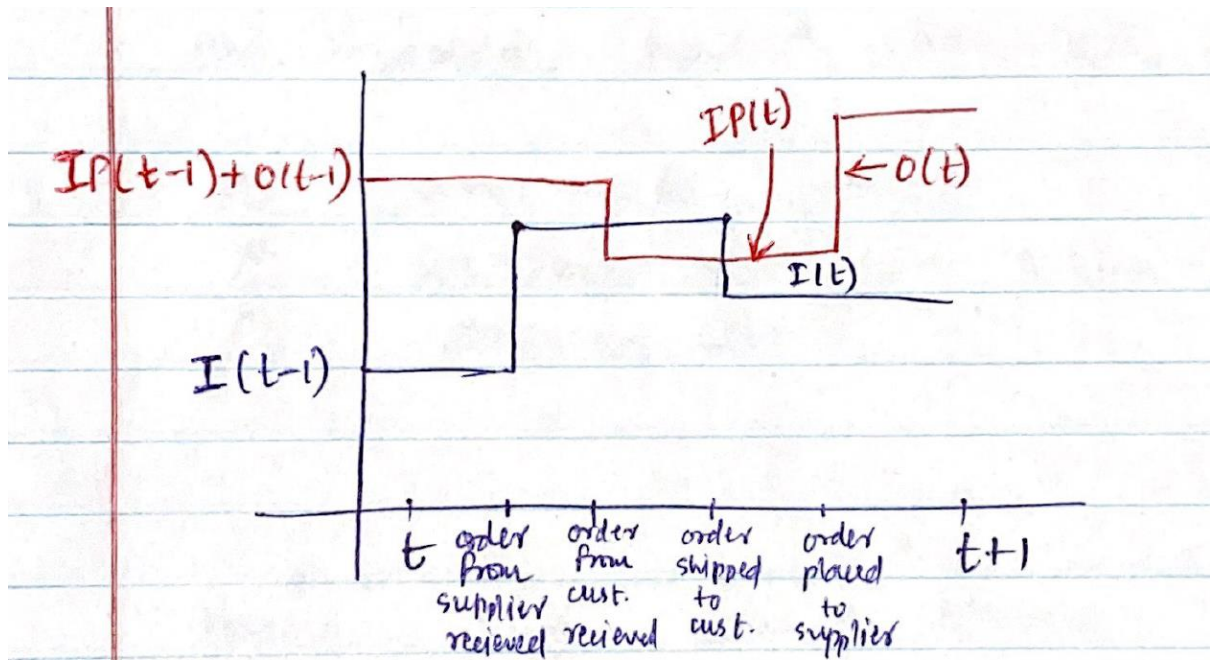 IP(t)
IP(t-1)+O(t-1)
←O(t)
I(t)
I(t-1)
t
order
from
supplier
recieved
order
from
cust.
recieved
order
shipped
to
cust.
order
placed
to
supplier
t+1